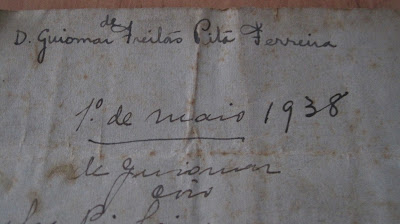 D. Guiomar de Freitas Pitã Ferreira
1º de maio 1938
de Guiomar